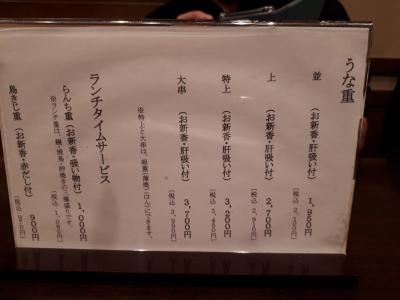 うな重
並 (お新香・肝吸い付) 1,950円
上 (お新香・肝吸い付) 2,700円
(税込 2,916円)
特上 (お新香・肝吸い付) 3,200円
大串 (お新香・肝吸い付) 3,700円
※特上と大串は、組重(蒲焼・ごはん)にできます。
ランチタイムサービス
らんち重 (お新香・吸い物付) 1,000円
(税込 1,080円)
鳥きじ重 (お新香・赤だし付) 900円